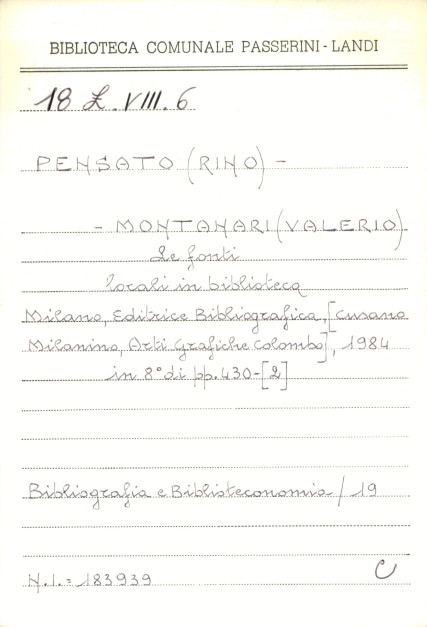 BIBLIOTECA COMUNALE PASSERINI - LANDI
18 L. VIII. 6
PENSATO (RINO) -
- MONTANARI (VALERIO)
Le fonti
locali in biblioteca
Milano, Editrice Bibliografica, [Cusano
Milanino, Arti Grafiche Colombo], 1984
in 8° di pp. 430-[2]
Bibliografia e Biblioteconomia / 19
N.I. = 183939
C